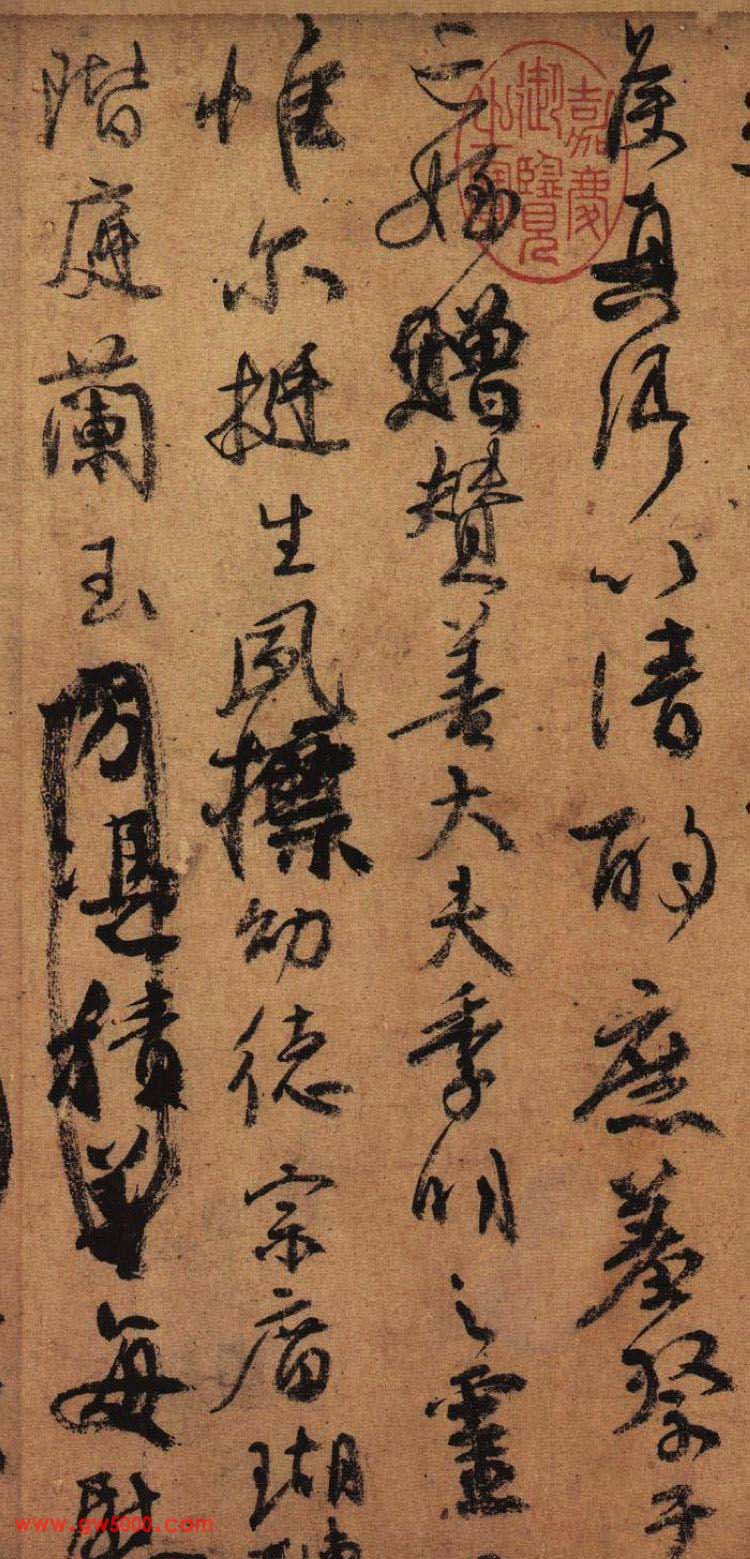 侯真卿以清酌庶羞祭于
亡姪贈贊善大夫季明之靈
惟尔挺生夙標幼德宗廟瑚璉
階庭蘭玉方憑積善每慰
嘉慶
御覽
之寶
www.gw5000.com